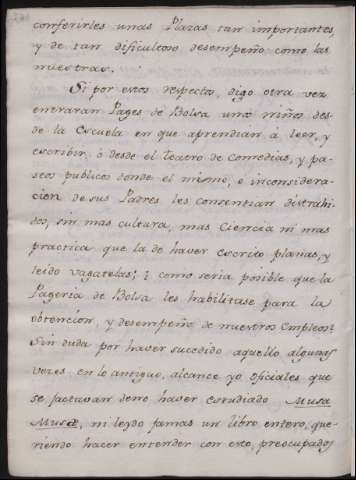 conferirles unas Plazas tan importantes,
y de tan dificultoso desempeño como las
nuestras.
Si por estos respectos, digo otra vez
entraran Pages de Bolsa unos niños des-
de la Escuela en que aprendian á leer, y
escribir ò desde el Teatro de Comedias, y pa-
seos publicos donde el mismo, e inconsidera-
cion de sus Padres les consentian distrahi-
dos, sin mas cultura, mas Ciencia ni mas
practica que la de haver escrito planas, y
leido vagatelas; ¿ como seria posible que la
Pageria de Bolsa les habilitase para la
obtencion, y desempeño de nuestros Empleos?
Sin duda por haver sucedido aquello algunas
veces en lo antiguo, alcance yo oficiales que
se jactavan de no haver estudiado Musa
Musæ, ni leydo jamas un libro entero, que-
riendo hacer entender con esto, preocupados